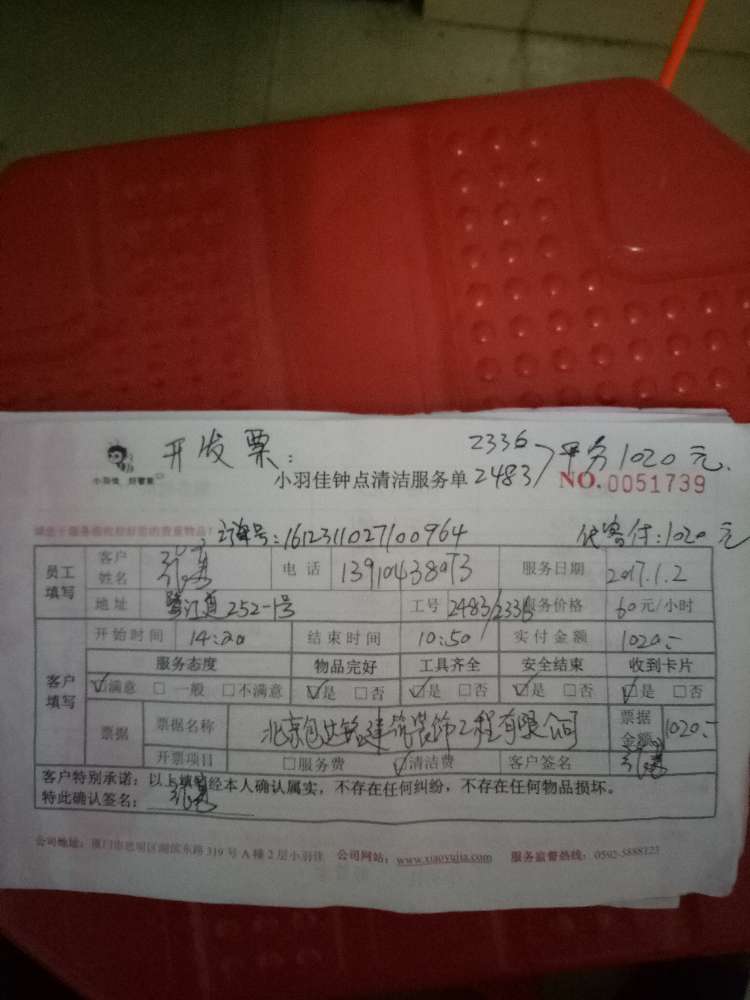 开发票:
2336
2483 平分1020元.
小羽佳 好管家
小羽佳钟点清洁服务单
NO.0051739
订单号:1612311027100964
代客付:1020元
员工填写 客户姓名 电话 服务日期 2017.1.2
地址 252-1号 工号 2483/2336 服务价格 60元/小时
客户填写 开始时间 14:20 结束时间 10:50 实付金额 1020.-
服务态度 物品完好 工具齐全 安全结束 收到卡片
☑满意 □一般 □不满意 ☑是 □否 ☑是 □否 ☑是 □否 ☑是 □否
票据 票据名称 北京 建筑装饰工程有限公司 票据金额 1020.-
开票项目 □服务费 ☑清洁费 客户签名
客户特别承诺:以上填写经本人确认属实,不存在任何纠纷,不存在任何物品损坏。
特此确认签名:
公司地址:厦门市思明区湖滨东路319号A幢2层小羽佳 公司网站:www.xiaoyujia.com 服务监督热线:0592-5888123